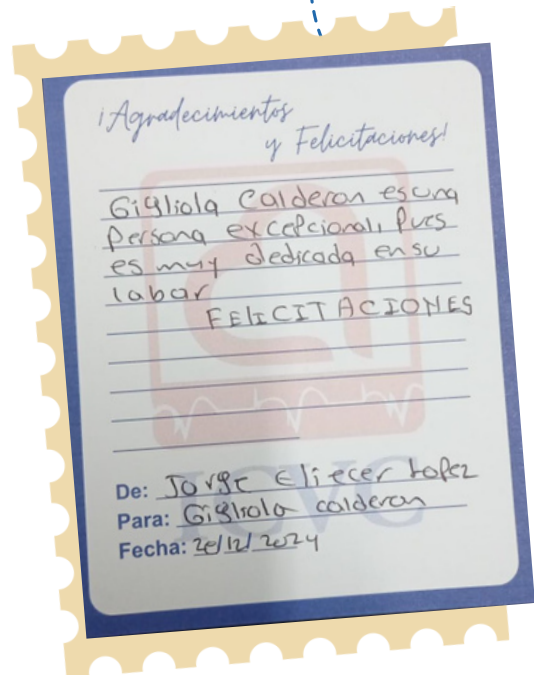 ¡Agradecimientos
y Felicitaciones!
Gigliola Calderon es una
persona excepcional, pues
es muy dedicada en su
labor
FELICITACIONES
De: Jorge Eliecer Lopez
Para: Gigliola calderon
Fecha: 20/12/2024
ICVC